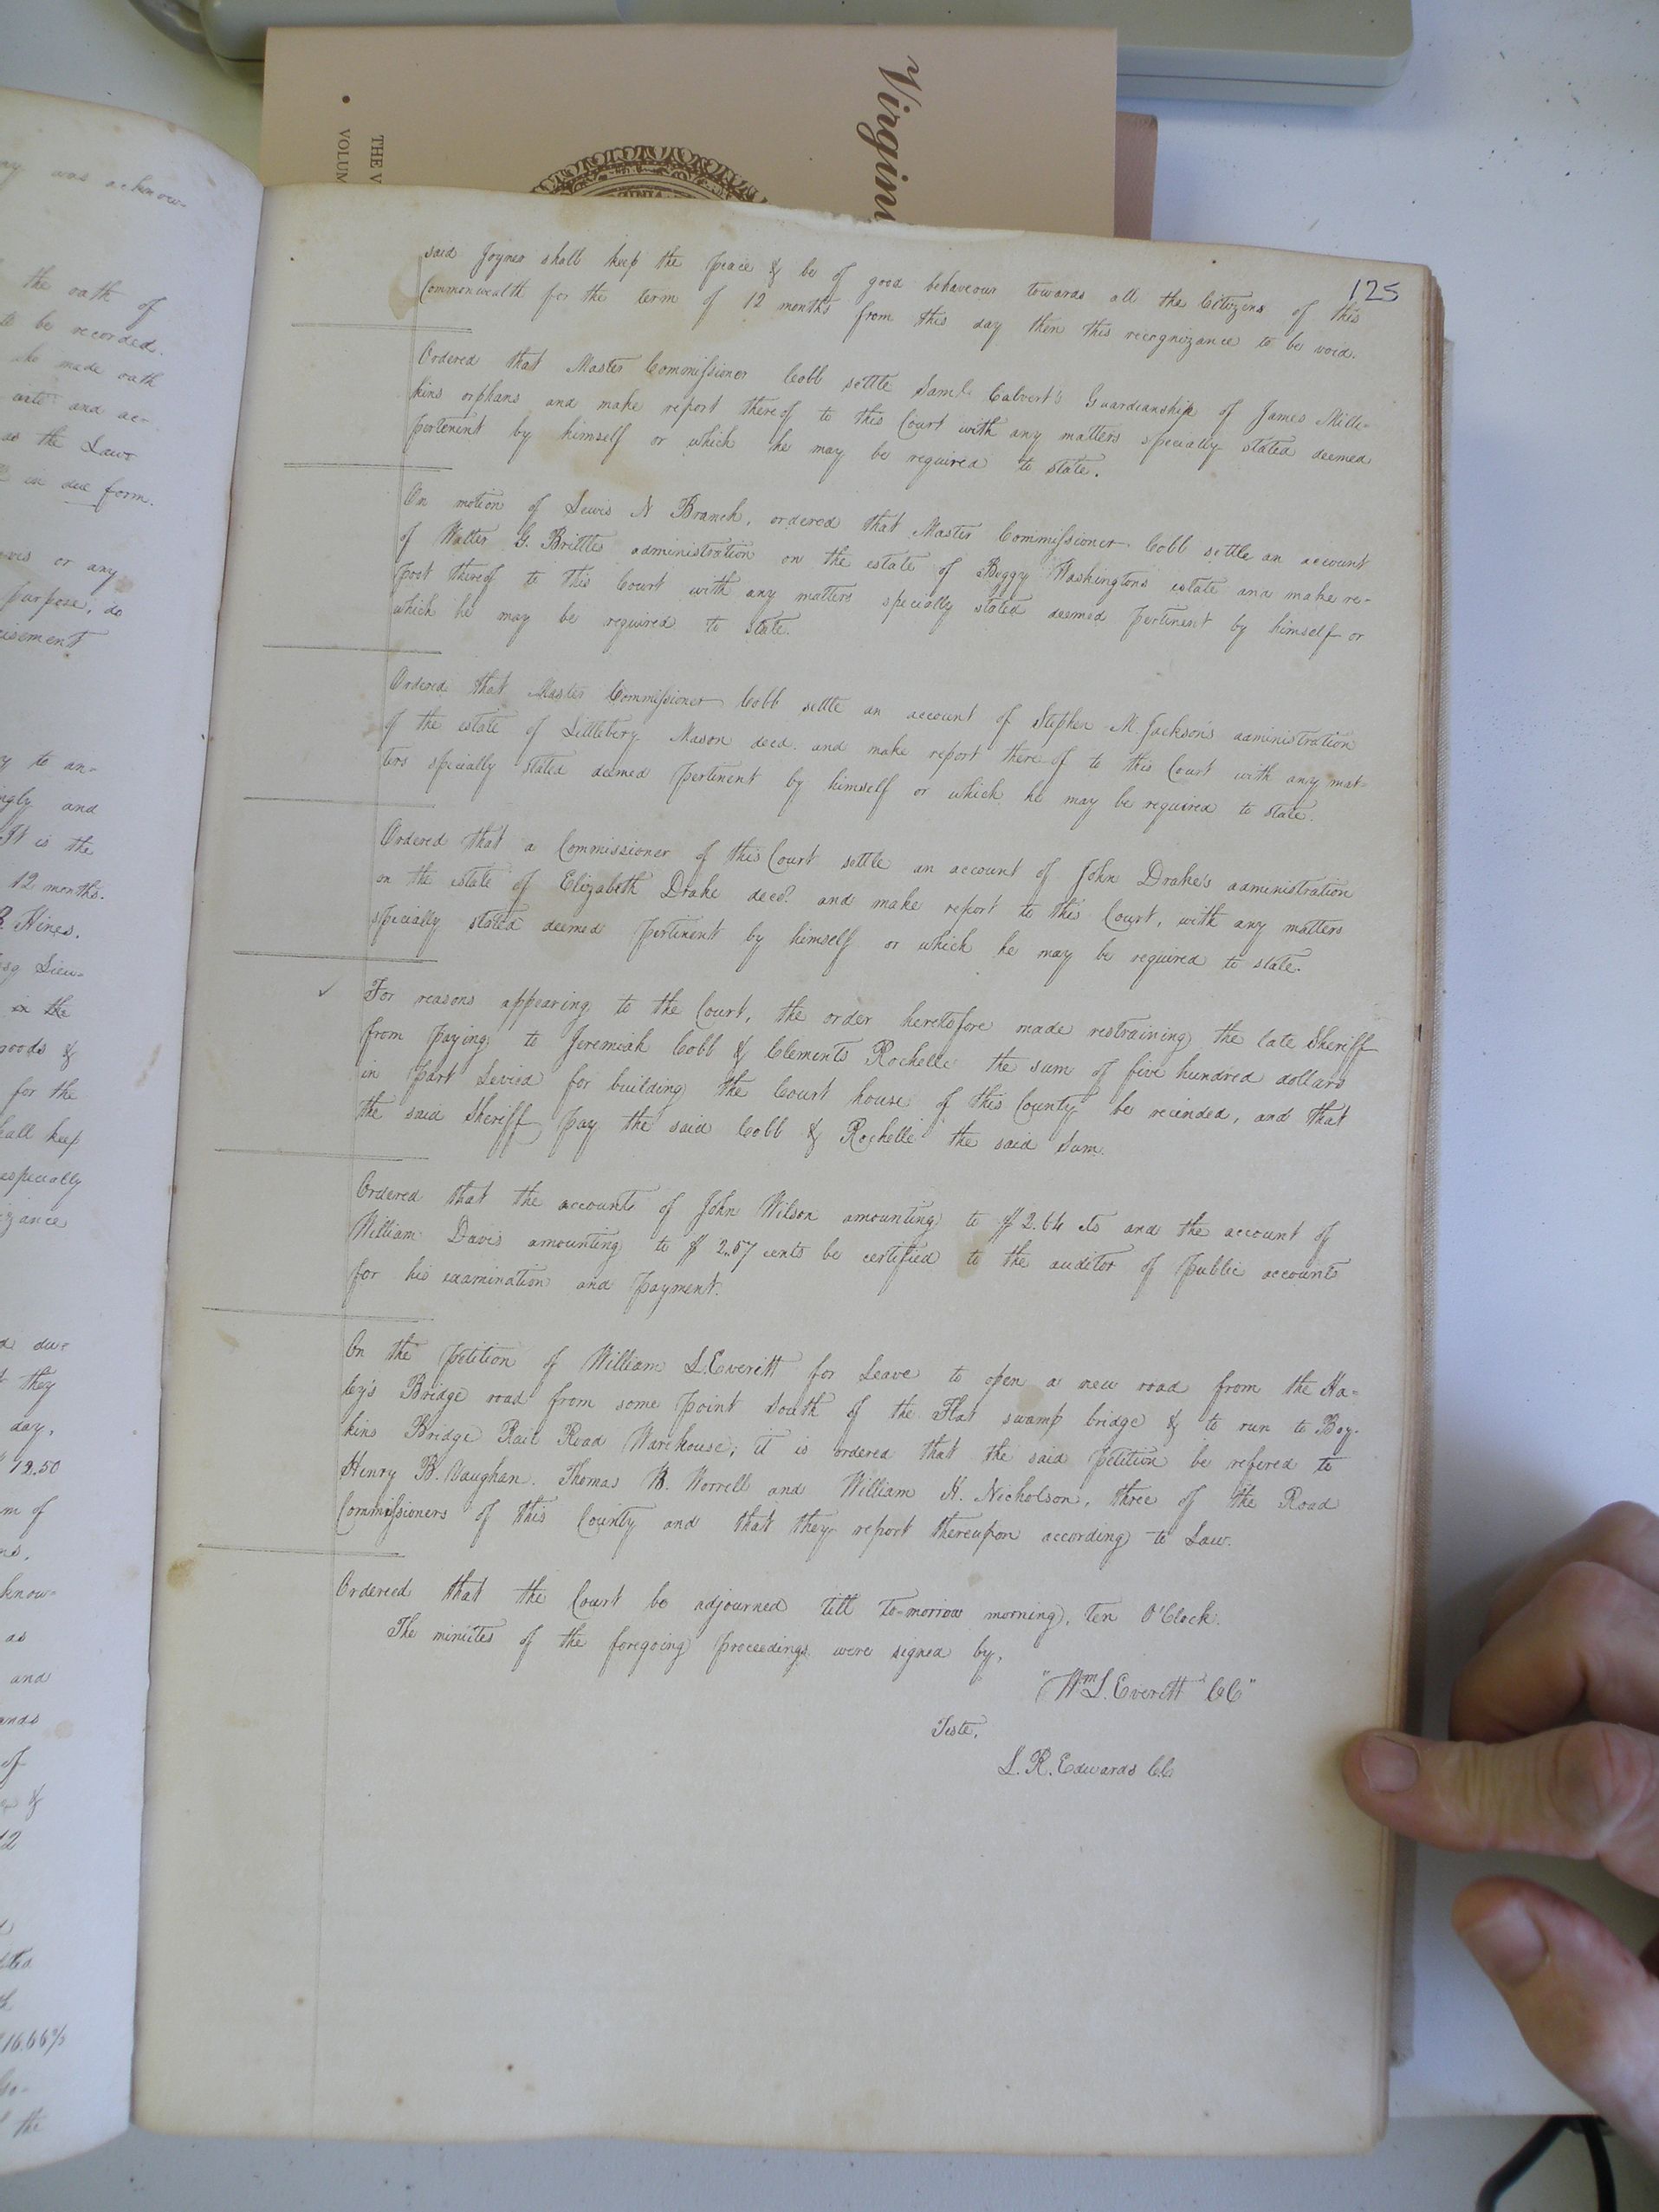 Virgin
THE V
VOLUM
125
said Joyner shall keep the peace & be of good behaveour towards all the Citizens of this
Commonwealth for the term of 12 months from this day then this recognizance to be void.
Ordered that Master Commissioner Cobb settle Saml. Calvert's Guardianship of James Mille-
kins orphans and make report thereof to this Court with any matters specially stated deemed
pertenent by himself or which he may be required to state.
On motion of Lewis N Branch, ordered that Master Commissioner Cobb settle an account
of Walter G. Brittles administration on the estate of Boggy Washingtons estate and make re-
port thereof to this Court with any matters specially stated deemed pertinent by himself or
which he may be required to state.
Ordered that Master Commissioner Cobb settle an account of Stephen M. Jackson's administration
of the estate of Littlebery Mason decd. and make report there-of to this Court with any mat-
ters specially stated deemed pertinent by himself or which he may be required to state.
Ordered that a Commissioner of this Court settle an account of John Drake's administration
on the estate of Elizabeth Drake decd. and make report to this Court, with any matters
specially stated deemed pertinent by himself or which he may be required to state.
For reasons appearing to the Court, the order heretofore made restraining the late Sheriff
from paying to Jeremiah Cobb & Clements Rochelle the sum of five hundred dollars
in part Levied for building the Court house of this County be recinded, and that
the said Sheriff pay the said Cobb & Rochelle the said Sum.
Ordered that the accounts of John Wilson amounting to $2.64 cts and the account of
William Davis amounting to $2.57 cents be certified to the auditor of public accounts
for his examination and payment.
On the petition of William L. Everett for Leave to open a new road from the Ha-
ley's Bridge road from some point South of the Flat swamp bridge & to run to Boy-
kins Bridge Rail Road Warehouse; it is ordered that the said petition be refered to
Henry B. Vaughan. Thomas W. Worrell and William H. Nicholson, three of the Road
Commissioners of this County and that they report thereupon according to Law.
Ordered that the Court be adjourned till to-morrow morning, ten O'Clock.
The minutes of the foregoing proceedings were signed by,
"Wm L. Everett CC"
Teste,
L. R. Edwards C.C.